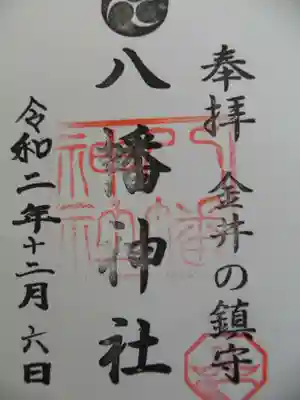 奉拝 金井の鎮守
八幡神社
令和二年十二月六日
八幡
神社